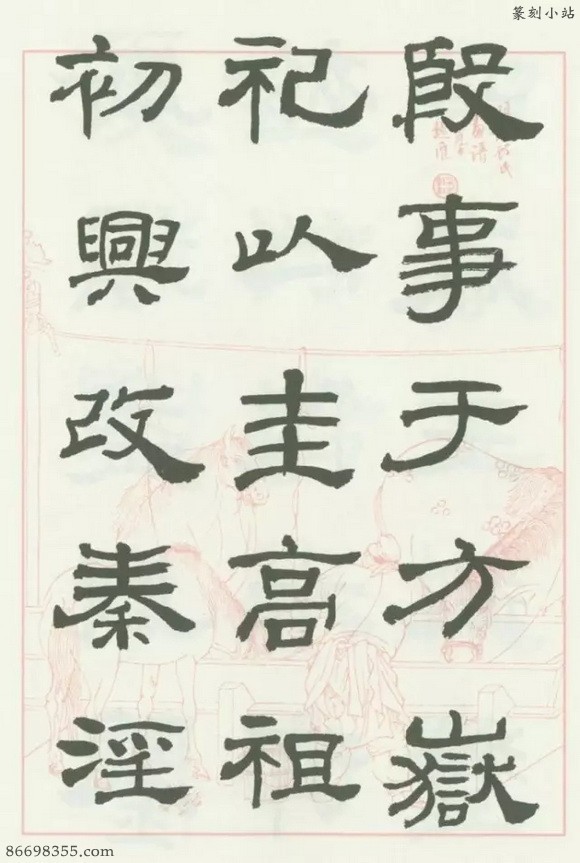 篆刻小站
殷事于方嶽
祀以圭高祖
初興改秦淫
86698355.com